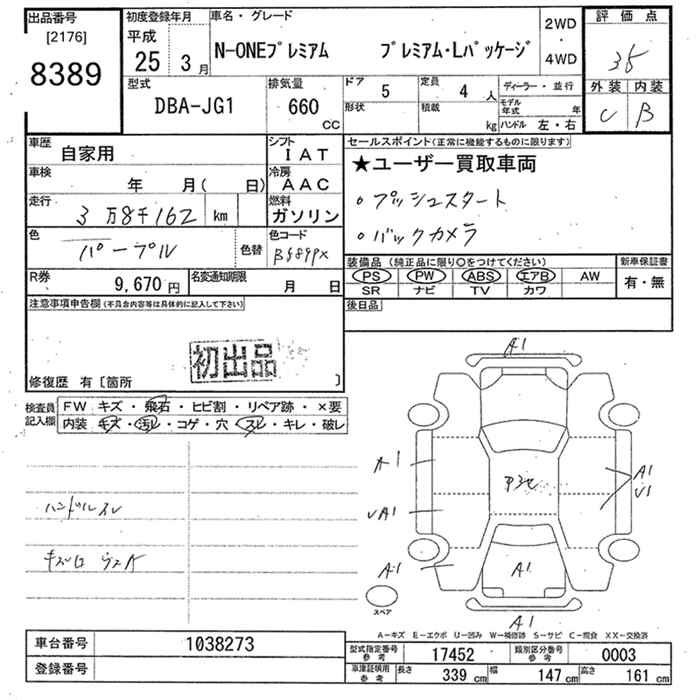 出品番号
[2176]
8389
初度登録年月
平成
25 3月
車名・グレード
N-ONEプレミアム プレミアム・Lパッケージ
2WD
・
4WD
評価点
3.5
外装 内装
C B
型式
DBA-JG1
排気量
660
CC
ドア 5
形状
定員 4 人
積載 kg
ディーラー・並行
モデル年式 年
ハンドル 左・右
車歴 自家用
シフト IAT
車検 年 月( 日)
冷房 AAC
走行 3万8千162 km
燃料 ガソリン
色 パープル 色替
色コード
R券 9,670円
名変通知期限 月 日
セールスポイント(正常に機能するものに限ります)
★ユーザー買取車両
。プッシュスタート
。バックカメラ
装備品(純正品に限り○をつけてください)
新車保証書
PS PW ABS エアB AW
有・無
SR ナビ TV カワ
後日品
注意事項申告欄(不具合内容等は具体的に記入して下さい)
初出品
修復歴 有〔箇所 〕
検査員記入欄
FW キズ・飛石・ヒビ割・リペア跡・×要
内装 キズ・汚レ・コゲ・穴・スレ・キレ・破レ
ハンドルスレ
A1
A1
U1
A1
A1
A1
スペア
A-キズ E-エクボ U-凹み W-補修跡 S-サビ C-腐食 XX-交換済
車台番号 1038273
登録番号
型式指定番号参考 17452 類別区分番号参考 0003
車庫証明用参考 長さ 339 cm 幅 147 cm 高さ 161 cm